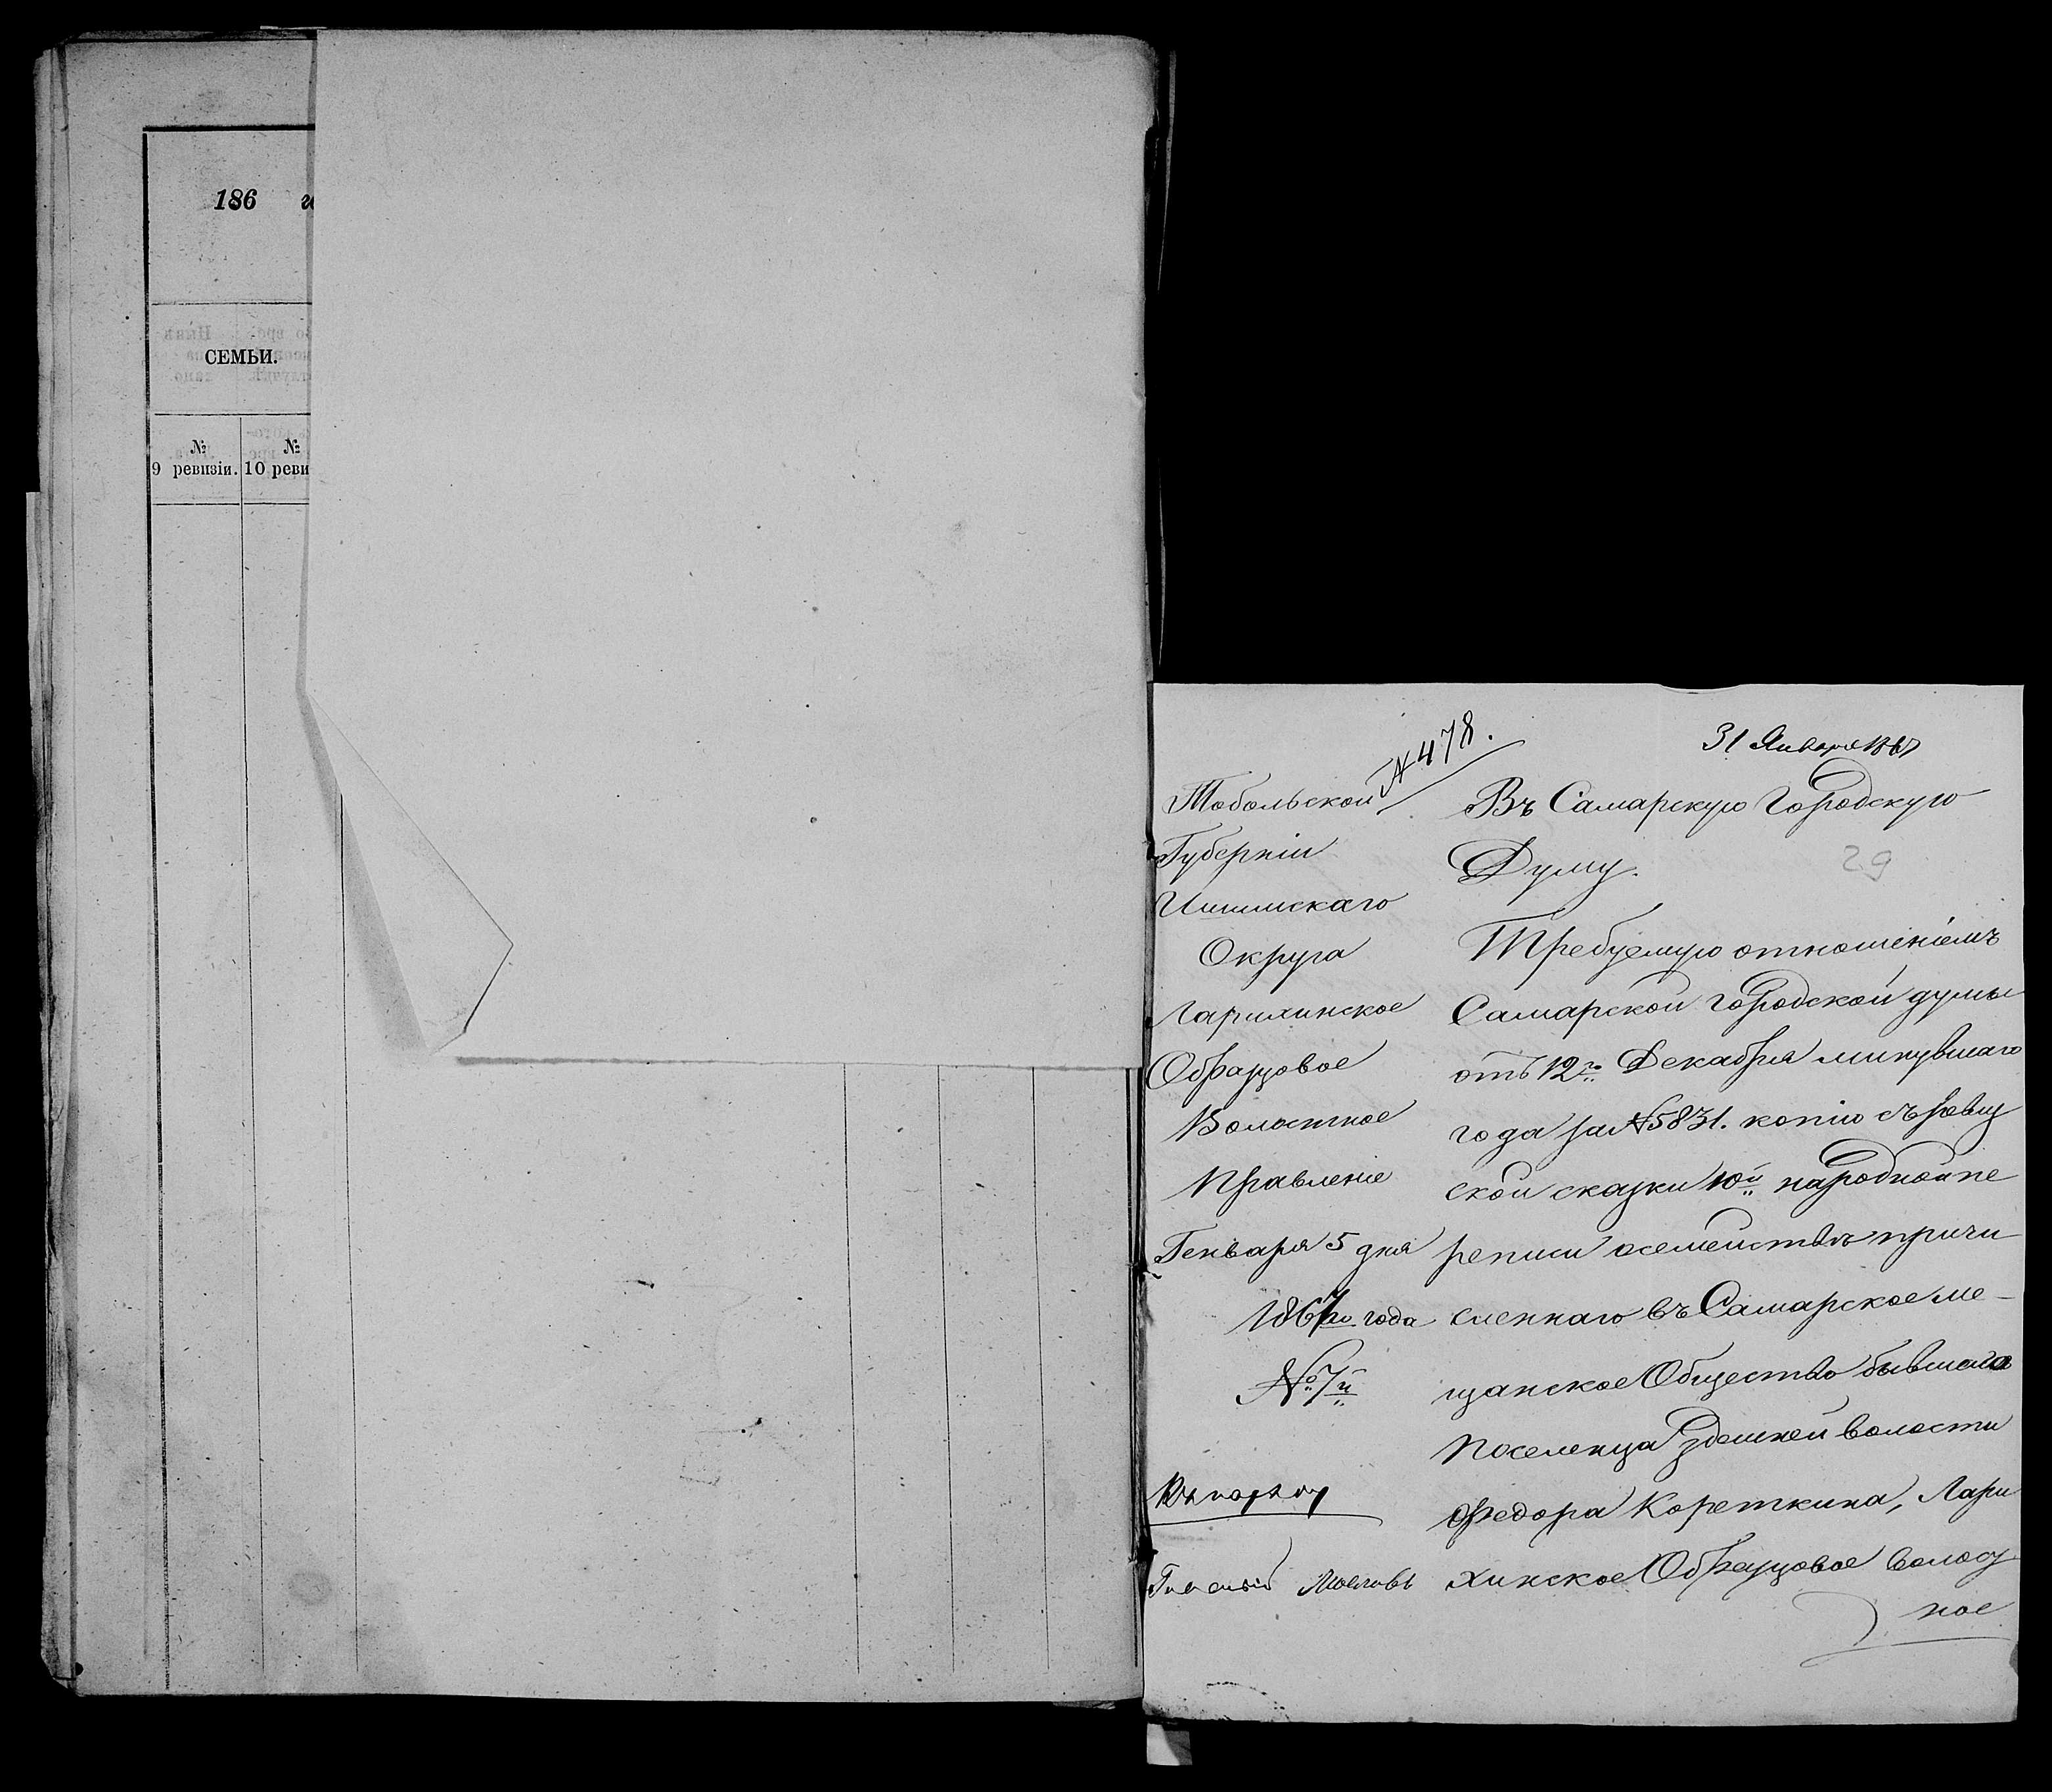 186 г
СЕМЬИ.
№
9 ревизіи.
№
10 реви
№ 478.
31 Января 1867
Тобольской
Губерніи
Ишимскаго
Округа
Ларихинское
Образцовое
Волостное
Правленіе
Генваря 5 дня
1867го года
№ 7й
Гласный
Въ Самарскую Городскую
Думу.
29
Требуемую отношеніемъ
Самарской городской думы
отъ 12го Декабря минувшаго
года за № 5831. копію съ ревиз
ской сказки 10й народной пе
реписи о семействе причи
сленнаго въ Самарское ме-
щанское Общество бывшаго
поселенца здешней волости
Федора Кореткина, Лари
хинское Образцовое волост
ное